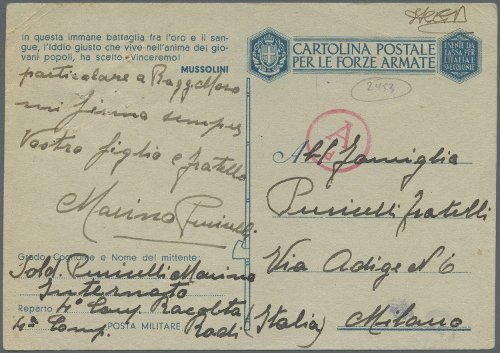 In questa immane battaglia fra l'oro e il san-
gue, l'Iddio giusto che vive nell'anima dei gio-
vani popoli, ha scelto. Vinceremo!
MUSSOLINI
particolare a
mi firmo sempre
Vostro figlio e fratello
Marino Puricelli
Grado, Cognome e Nome del mittente
Sold. Puricelli Marino
Internato
Reparto 4ª Comp Raccolta
4ª Comp. POSTA MILITARE Rodi (Italia)
CARTOLINA POSTALE
PER LE FORZE ARMATE
ESENTE DA
TASSA PER
L'ITALIA E
SUE COLONIE
2453
A
All Famiglia
Puricelli fratelli
Via Adige N 6
Milano